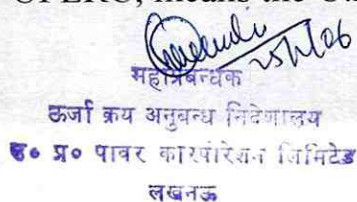 UPERC, means the U
25/1/06
महाप्रबन्धक
ऊर्जा क्रय अनुबन्ध निदेशालय
उ० प्र० पावर कारपोरेशन लिमिटेड
लखनऊ